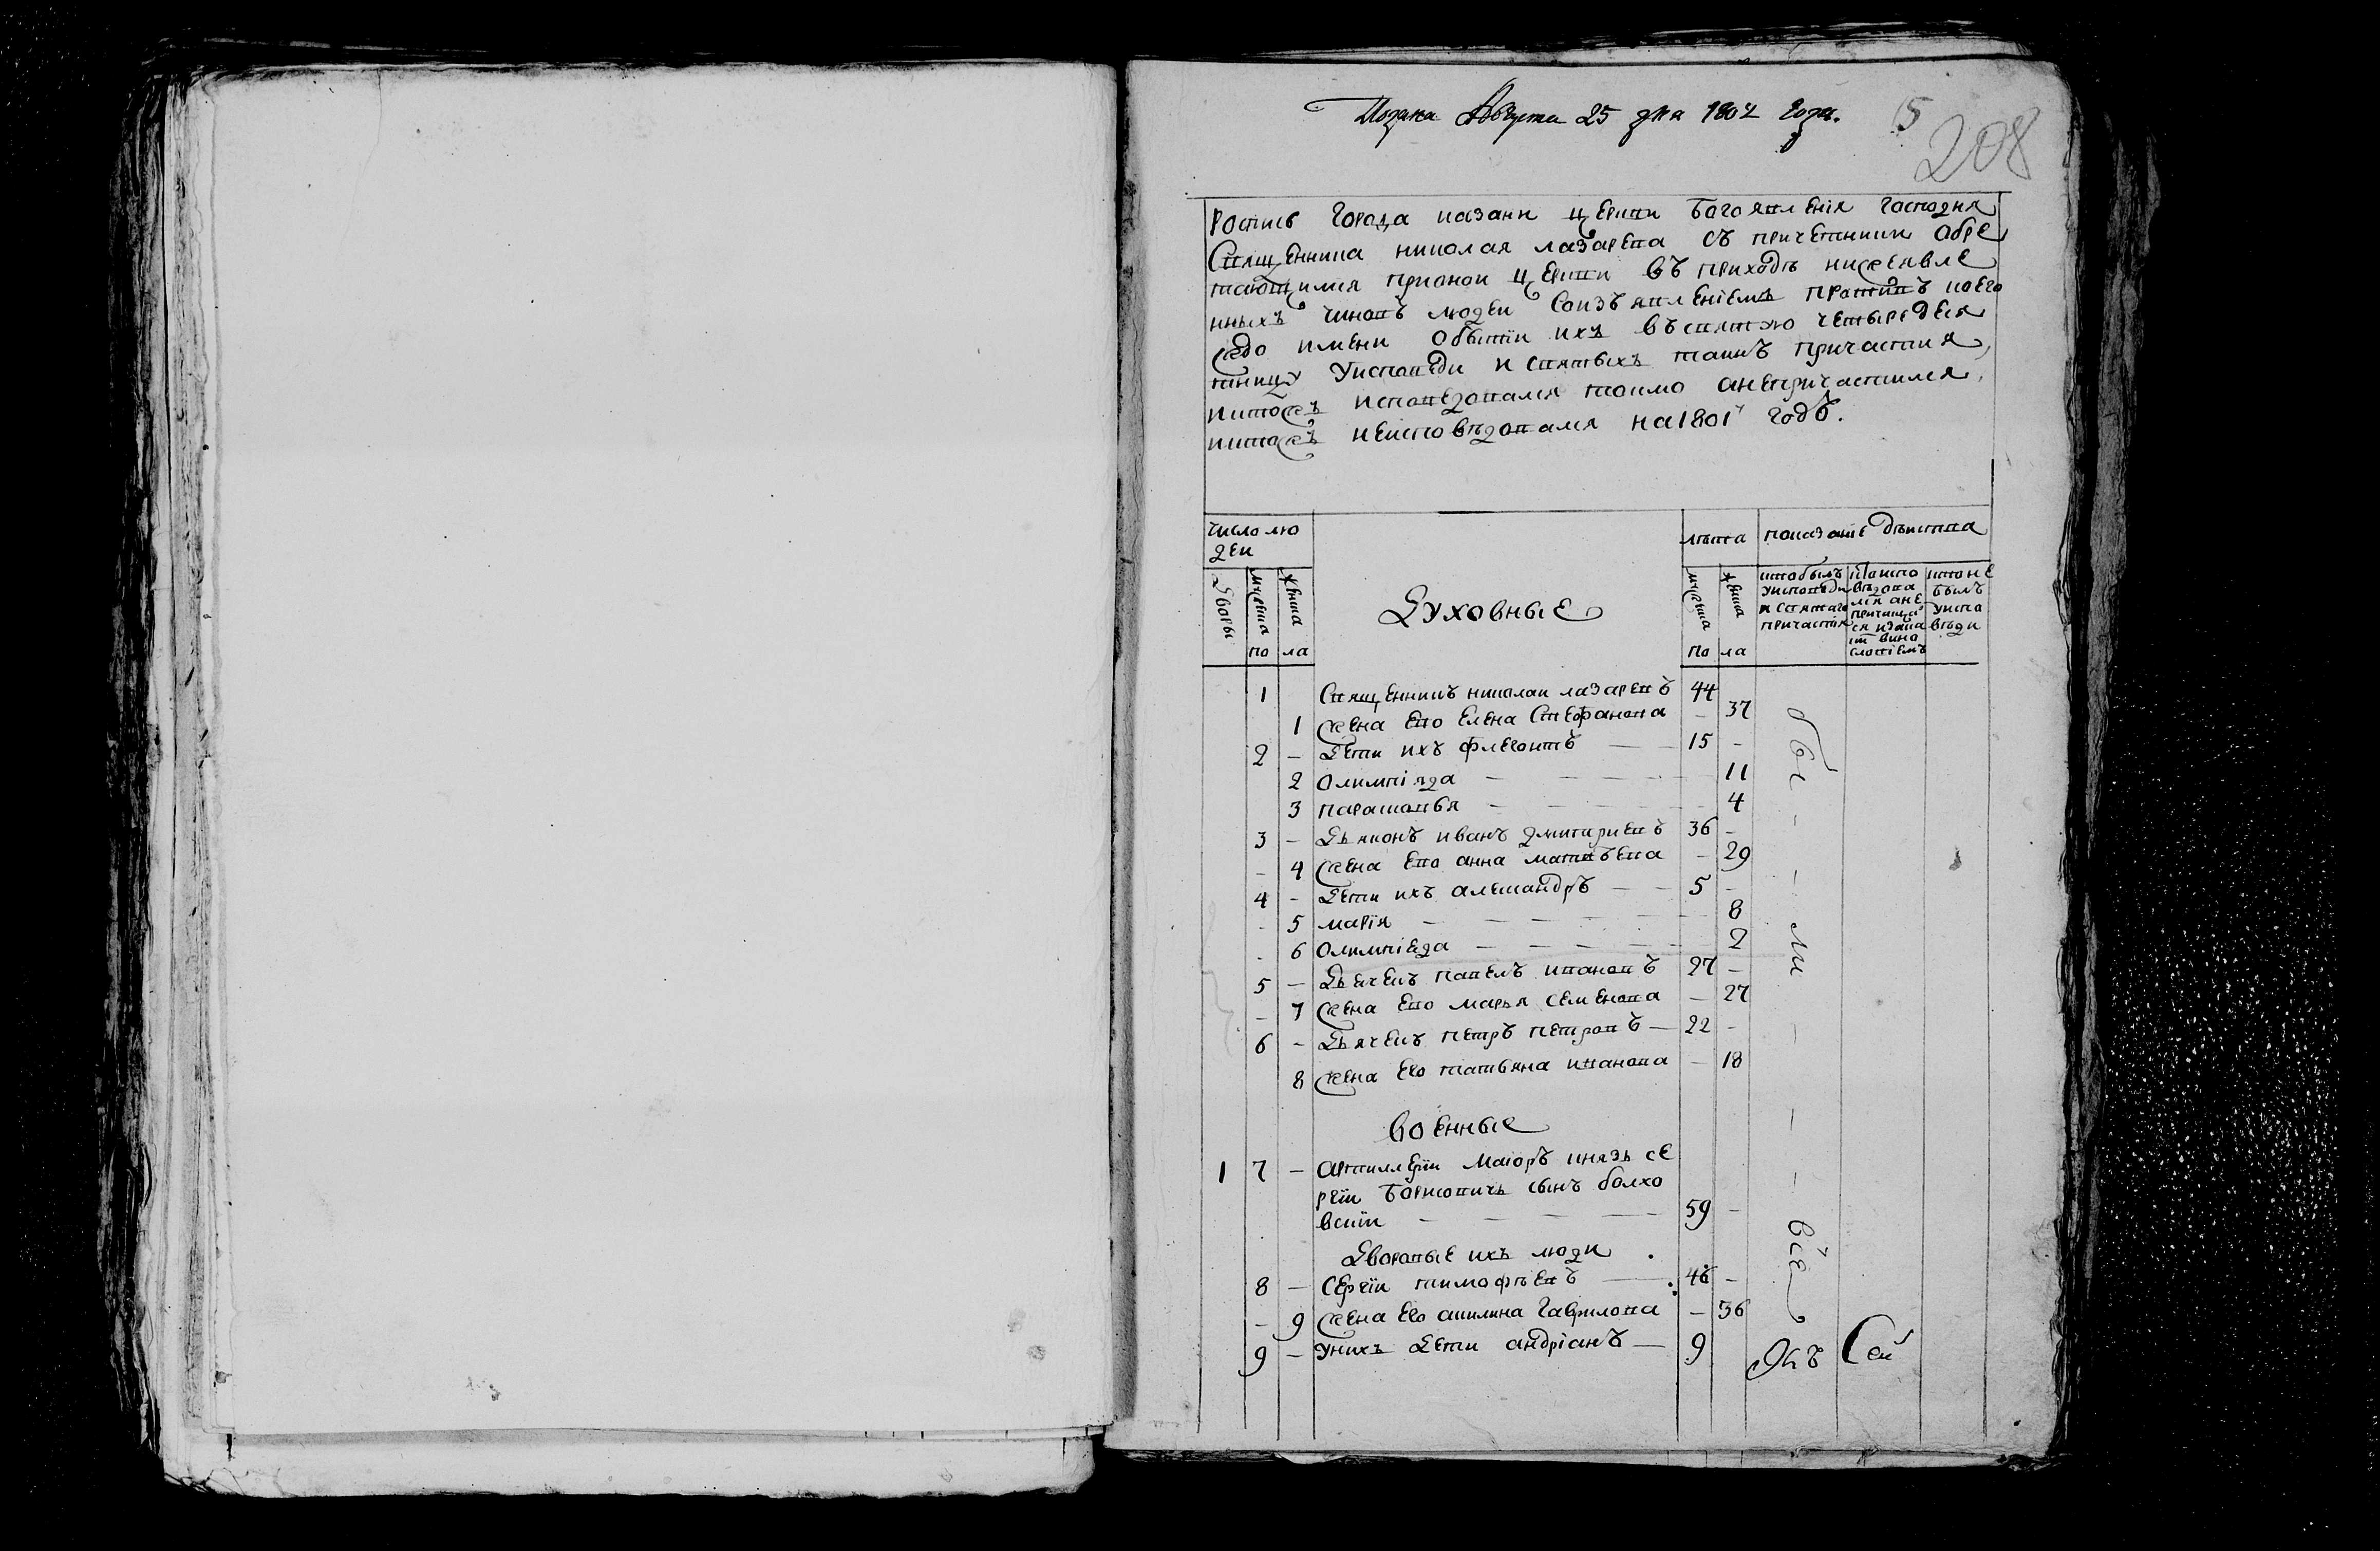 Подана Августа 25 дня 1802 года.
5
208
Роспись города казани церкви Богоявленія господня
Священника николая лазарева съ причетники обре
тающимся прионой церкви въ приходѣ нижеявле
нныхъ чиновъ людей соизъявленіемъ противъ коего
ждо имени обытіи ихъ въ святую четыредеся
тницу Уисповеди и святыхъ таинъ причастія,
иктожъ исповедовался токмо анепричастился,
иктожъ неисповѣдовался на 1801 годъ.
число лю
дей
лѣта
показаніе дѣйства
Дворы
мужеска
женска
по
ла
Духовные
мужеска
женска
по
ла
ктобылъ
Уисповеди
и святаго
причастія
Ктоиспо
вѣдова
лся ане
причасти
ся изака
кт вина
словіемъ
ктоне
былъ
Уиспо
вѣди
1 Священникъ николай лазаревъ 44
1 жена ево Елена Стефанова – 37
2 – Дети ихъ флегонтъ – 15 –
2 Олимпіяда – 11
3 парасковья – 4
3 – Дьяконъ иванъ дмитриевъ 36 –
– 4 жена ево анна матвѣева – 29
4 – Дети ихъ александръ – 5 –
– 5 марія – 8
– 6 Олимпіеда – 2
5 – Дьячекъ павелъ ивановъ 27 –
– 7 жена ево марья семенова – 27
6 – Дьячекъ петръ петровъ – 22 –
8 жена его татьяна иванова – 18
военные
1 7 – Артиллеріи маіоръ князь се
ргіи Борисовичь сынъ болхо
вскіи – 59 –
Дворовые ихъ люди
8 – Сергіи тимофѣевъ – 46 –
– 9 жена его акилина гаврилова – 56
9 – Унихъ Дети андріанъ – 9
бы – – ли – – – всѣ
Якъ Сей